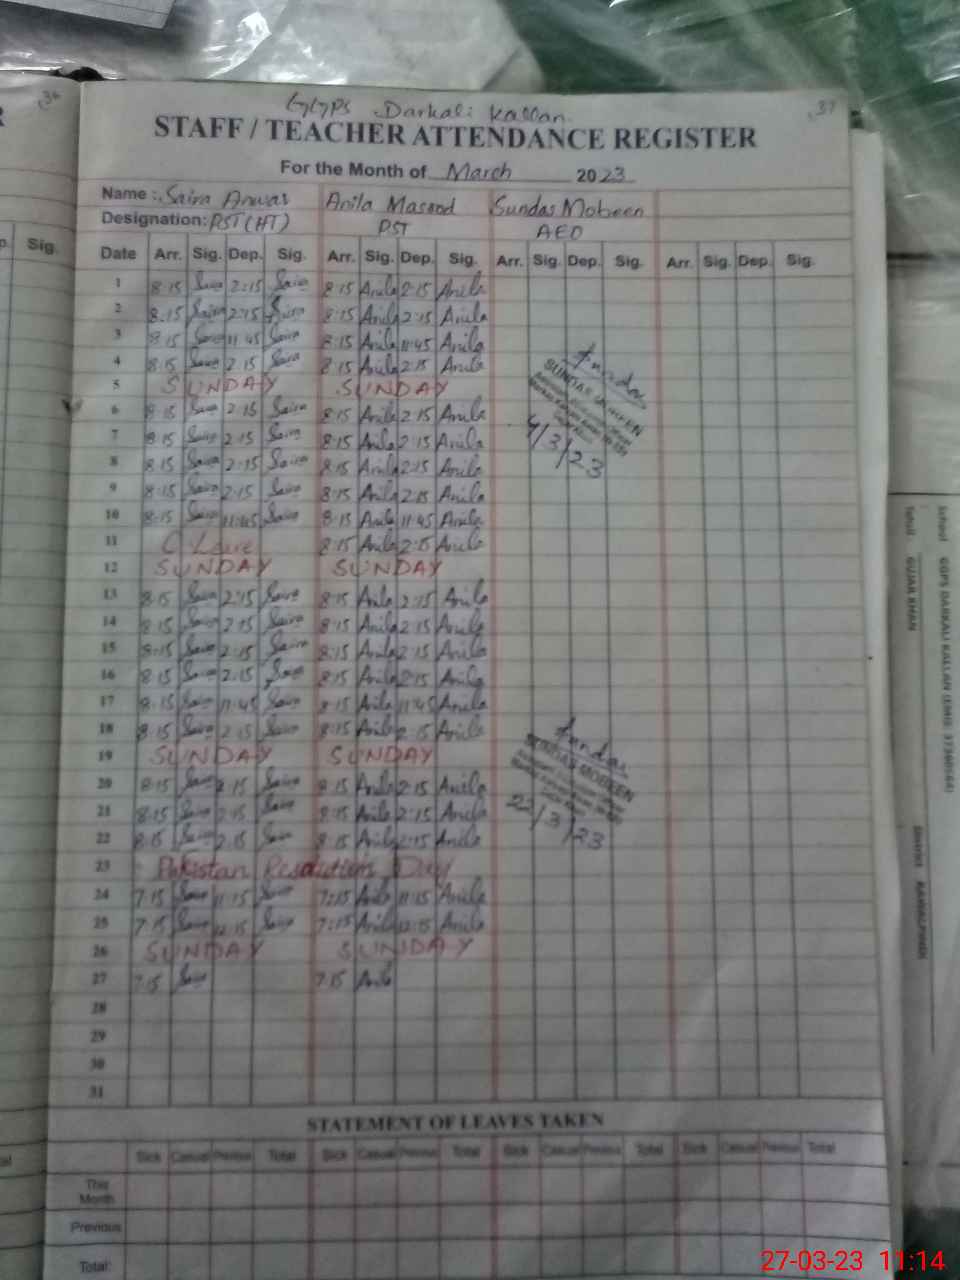 36
37
GGPS Darkali Kallan.
STAFF / TEACHER ATTENDANCE REGISTER
For the Month of March 2023
Name : Saira Anwar Anila Masood Sundas Mobeen
Designation: PST (HT) PST AEO
p. Sig.
Date Arr. Sig. Dep. Sig. Arr. Sig. Dep. Sig. Arr. Sig. Dep. Sig. Arr. Sig. Dep. Sig.
1 8:15 Saira 2:15 Saira 8:15 Anila 2:15 Anila
2 8:15 Saira 2:15 Saira 8:15 Anila 2:15 Anila
3 8:15 Saira 11:45 Saira 8:15 Anila 11:45 Anila
4 8:15 Saira 2:15 Saira 8:15 Anila 2:15 Anila
5 SUNDAY SUNDAY
6 8:15 Saira 2:15 Saira 8:15 Anila 2:15 Anila
7 8:15 Saira 2:15 Saira 8:15 Anila 2:15 Anila
8 8:15 Saira 2:15 Saira 8:15 Anila 2:15 Anila
9 8:15 Saira 2:15 Saira 8:15 Anila 2:15 Anila
10 8:15 Saira 11:45 Saira 8:15 Anila 11:45 Anila
11 C Leave 8:15 Anila 2:15 Anila
12 SUNDAY SUNDAY
13 8:15 Saira 2:15 Saira 8:15 Anila 2:15 Anila
14 8:15 Saira 2:15 Saira 8:15 Anila 2:15 Anila
15 8:15 Saira 2:15 Saira 8:15 Anila 2:15 Anila
16 8:15 Saira 2:15 Saira 8:15 Anila 2:15 Anila
17 8:15 Saira 11:45 Saira 8:15 Anila 11:45 Anila
18 8:15 Saira 2:15 Saira 8:15 Anila 2:15 Anila
19 SUNDAY SUNDAY
20 8:15 Saira 2:15 Saira 8:15 Anila 2:15 Anila
21 8:15 Saira 2:15 Saira 8:15 Anila 2:15 Anila
22 8:15 Saira 2:15 Saira 8:15 Anila 2:15 Anila
23 Pakistan Resolution Day
24 7:15 Saira 11:15 Saira 7:15 Anila 11:15 Anila
25 7:15 Saira 12:15 Saira 7:15 Anila 12:15 Anila
26 SUNDAY SUNDAY
27 7:15 Saira 7:15 Anila
28
29
30
31
Sundas
SUNDAS MOBEEN
4/3/23
Sundas
SUNDAS MOBEEN
22/3/23
STATEMENT OF LEAVES TAKEN
Sick Casual Previous Total Sick Casual Previous Total Sick Casual Previous Total Sick Casual Previous Total
This Month
Previous
Total:
School GGPS DARKALI KALLAN
Tehsil GUJAR KHAN District RAWALPINDI
27-03-23 11:14